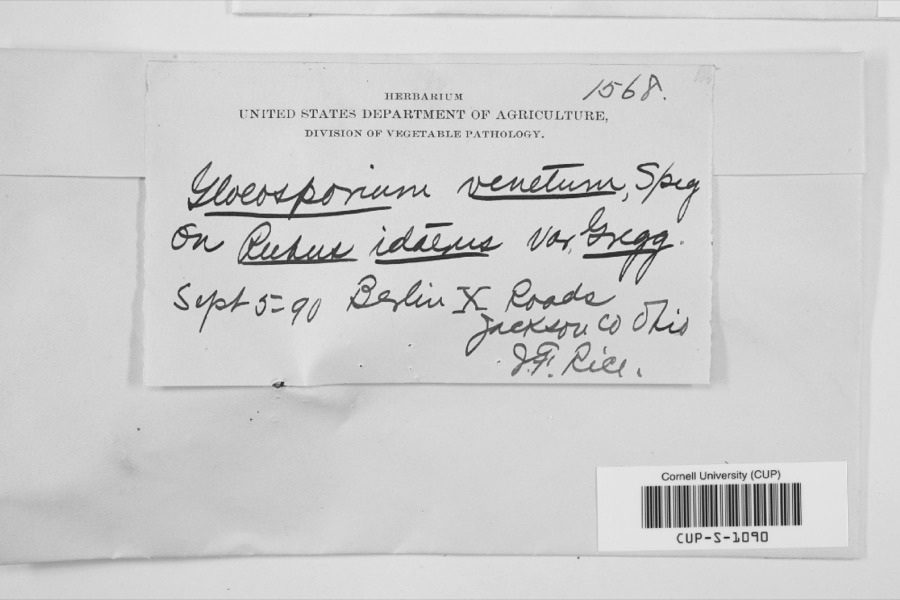 1568.
HERBARIUM
UNITED STATES DEPARTMENT OF AGRICULTURE,
DIVISION OF VEGETABLE PATHOLOGY.
Gloeosporium venetum, Speg
On Rubus idaeus var. Gregg.
Sept 5-90 Berlin X Roads
Jackson Co Ohio
J.F. Rice.
Cornell University (CUP)
CUP-S-1090